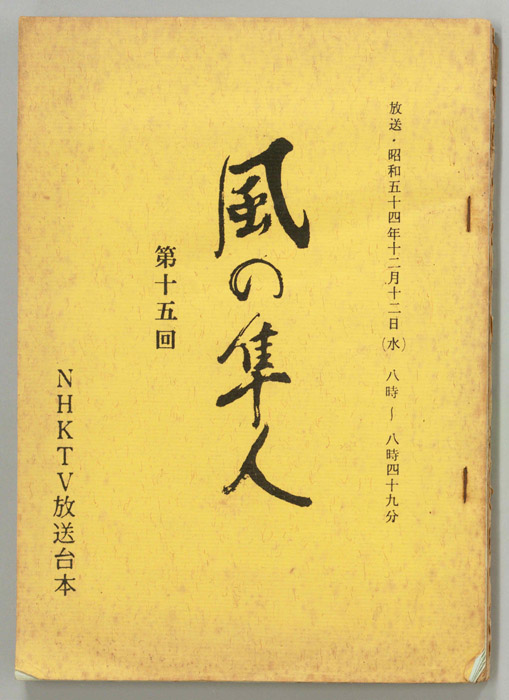 放送・昭和五十四年十二月十二日(水) 八時~八時四十九分
風の隼人
第十五回
NHKTV放送台本